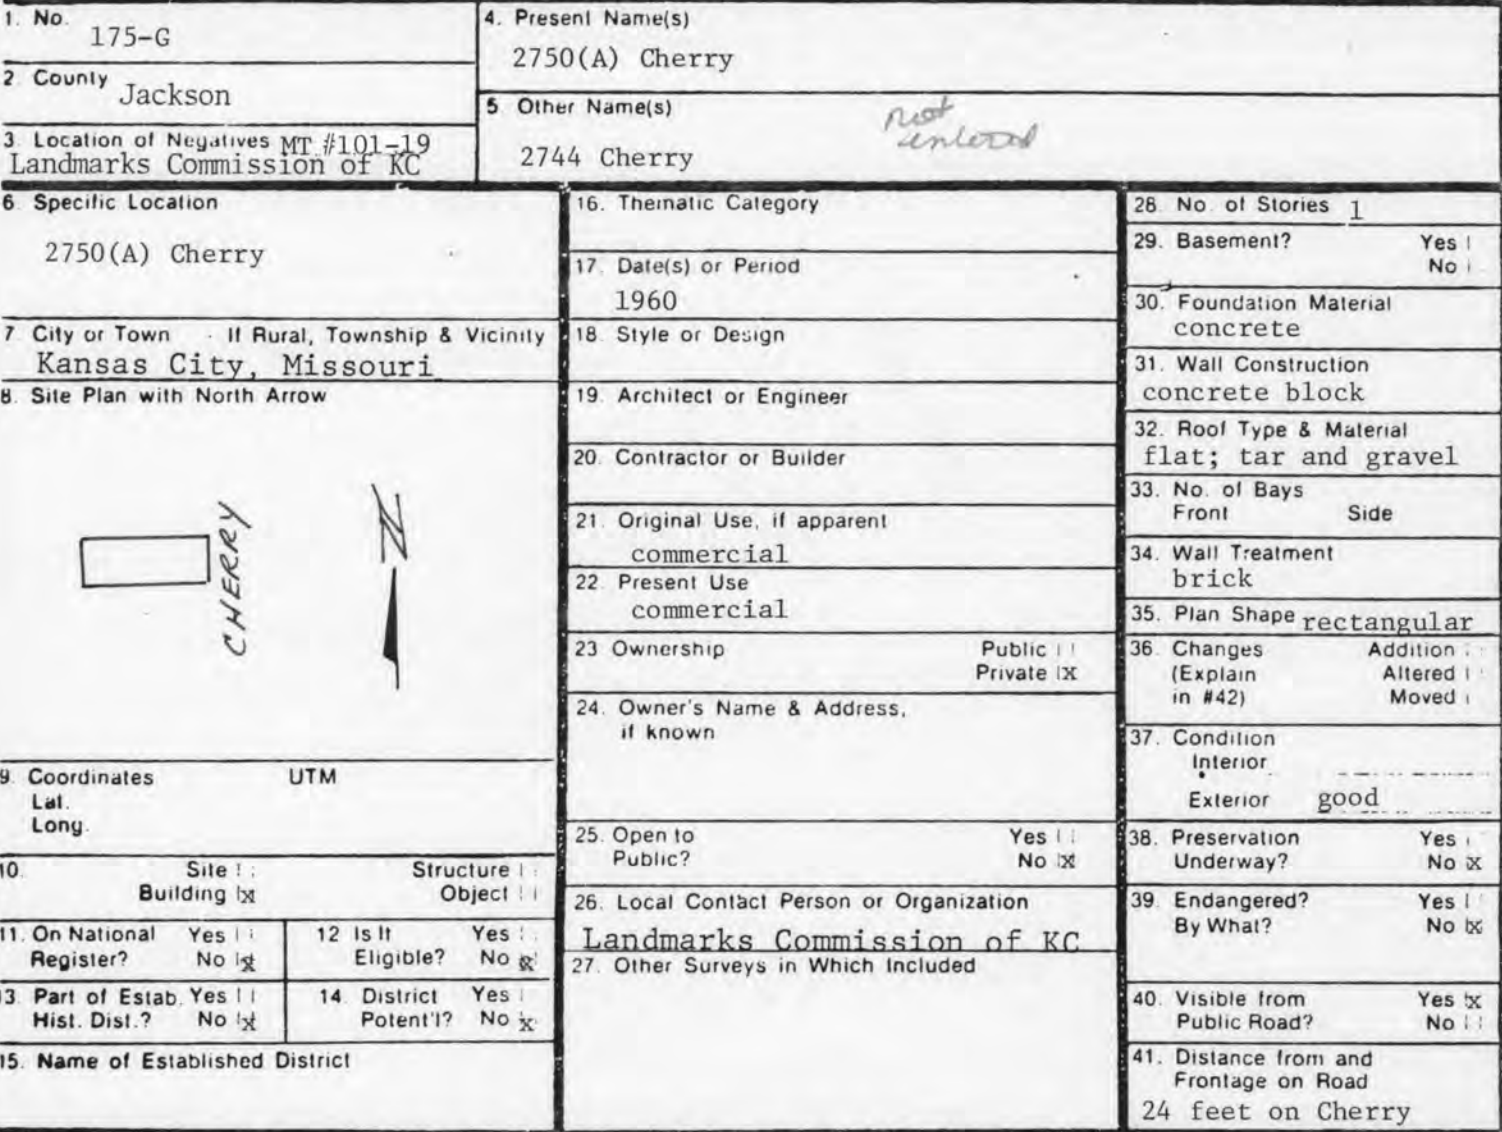 1. No.
175-G
2. County
Jackson
3. Location of Negatives MT #101-19
Landmarks Commission of KC
4. Present Name(s)
2750(A) Cherry
5. Other Name(s)
not
entered
2744 Cherry
6. Specific Location
2750(A) Cherry
7. City or Town If Rural, Township & Vicinity
Kansas City, Missouri
8. Site Plan with North Arrow
CHERRY
N
9. Coordinates UTM
Lat.
Long.
10. Site Structure
Building x Object
11. On National Yes
Register? No x
12. Is It Yes
Eligible? No x
13. Part of Estab. Yes
Hist. Dist.? No x
14. District Yes
Potent'l? No x
15. Name of Established District
16. Thematic Category
17. Date(s) or Period
1960
18. Style or Design
19. Architect or Engineer
20. Contractor or Builder
21. Original Use, if apparent
commercial
22. Present Use
commercial
23. Ownership Public
Private x
24. Owner's Name & Address,
if known
25. Open to Yes
Public? No x
26. Local Contact Person or Organization
Landmarks Commission of KC
27. Other Surveys in Which Included
28. No. of Stories 1
29. Basement? Yes
No
30. Foundation Material
concrete
31. Wall Construction
concrete block
32. Roof Type & Material
flat; tar and gravel
33. No. of Bays
Front Side
34. Wall Treatment
brick
35. Plan Shape rectangular
36. Changes Addition
(Explain Altered
in #42) Moved
37. Condition
Interior
Exterior good
38. Preservation Yes
Underway? No x
39. Endangered? Yes
By What? No x
40. Visible from Yes x
Public Road? No
41. Distance from and
Frontage on Road
24 feet on Cherry